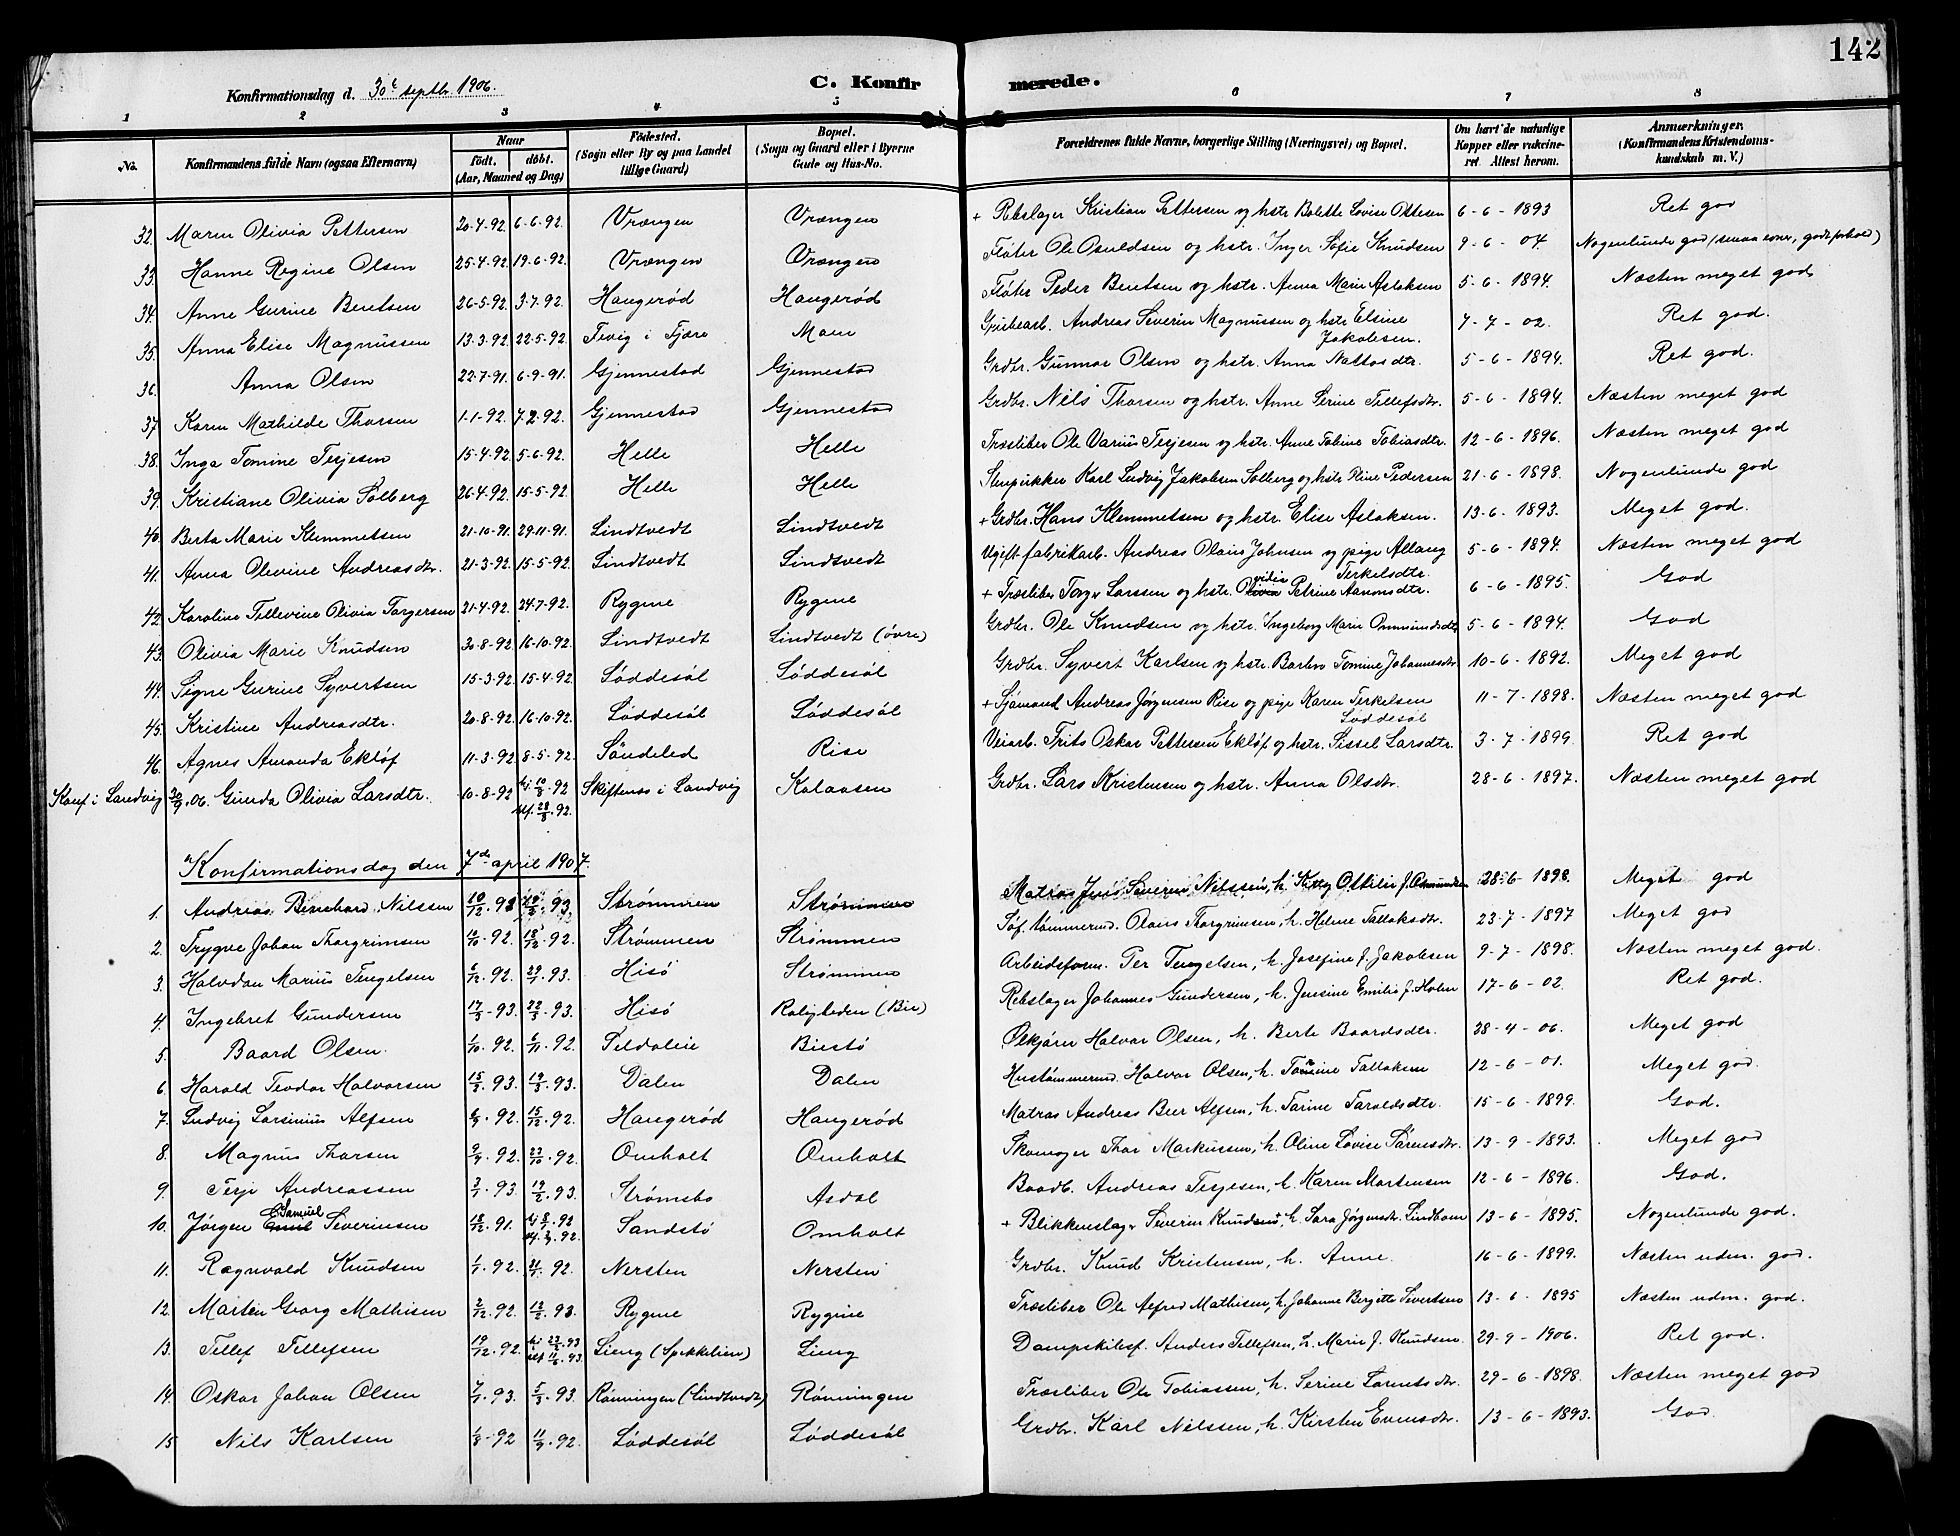 142
Konfirmationsdag d. 30te septbr. 1906.
C. Konfirmerede.
1 2 3 4 5 6 7 8
No. Konfirmandens fulde Navn (ogsaa Efternavn) Naar født. døbt. (Aar, Maaned og Dag) Fødested. (Sogn eller By og paa Landet tillige Gaard) Bopæl. (Sogn og Gaard eller i Byerne Gade og Hus-No. Forældrenes fulde Navne, borgerlige Stilling (Næringsvei) og Bopæl. Om havt de naturlige Kopper eller vakcineret. Attest herom. Anmærkninger. (Konfirmandens Kristendomskundskab m. V.)
32. Maren Olivia Pettersen 20-4-92. 6-6-92. Vrængen Vrængen + Rebslager Kristian Pettersen og hstr. Bolette Lovise Ottesen 6-6-1893 Ret god
33. Hanne Regine Olsen 25-4-92. 19-6-92. Vrængen Vrængen Fløter Ole Osuldsen og hstr. Inger Sofie Knudsen 9-6-04. Nogenlunde god
34. Anne Gurine Bentsen 26-5-92. 3-7-92. Haugerød Haugerød Fløter Peder Bentsen og hstr. Anna Marie Aslaksen 5-6-1894. Næsten meget god
35. Anna Elise Magnussen 13-3-92. 22-5-92. Fevig i Fjære Moen Grubearb. Andreas Severin Magnussen og hstr. Elsine Jakobsen. 7-7-02. Ret god.
36. Anna Olsen 22-7-91. 6-9-91. Gjennestad Gjennestad Grdbr. Gunnar Olsen og hstr. Anna 5-6-1894. Ret god.
37. Karen Mathilde Thorsen 1-1-92. 7-2-92. Gjennestad Gjennestad Grdbr. Nils Thorsen og hstr. Anne Serine Tellefsdtr. 5-6-1894. Næsten meget god
38. Inga Tomine Terjesen 15-4-92. 5-6-92. Helle Helle Træsliber Ole Varius Terjesen og hstr. Anne Tobine Tobiasdtr. 12-6-1896. Næsten meget god
39. Kristiane Olivia Solberg 26-4-92. 15-5-92. Helle Helle Stenpikker Karl Ludvig Jakobsen Solberg og hstr. Pedersen 21-6-1898. Nogenlunde god
40. Berta Marie Klemmetsen 21-10-91. 29-11-91. Lindtvedt Lindtvedt + Grdbr. Hans Klemmetsen og hstr. Elise Aslaksen. 13-6-1893. Meget god.
41. Anna Olivine Andreasdtr. 21-3-92. 15-5-92. Lindtvedt Lindtvedt Ugift fabrikarb. Andreas Olaus Johnsen og pige Allaug Terkelsdtr. 5-6-1894. Næsten meget god
42. Karoline Tellevine Olivia Torgersen 21-4-92. 24-7-92. Rygene Rygene + Træsliber Torger Larssen og hstr. Petrine Aanonsdtr. 6-6-1895. God
43. Olivia Marie Knudsen 30-8-92. 16-10-92. Lindtvedt Lindtvedt (øvre) Grdbr. Ole Knudsen og hstr. Ingeborg Marie Ommundsdtr 5-6-1894. God
44. Signe Gurine Syvertsen 15-3-92. 15-4-92. Løddesøl Løddesøl Grdbr. Syvert Karlsen og hstr. Barbro Tomine Johannesdtr 10-6-1892. Meget god
45. Kristine Andreasdtr. 20-8-92. 16-10-92. Løddesøl Løddesøl + Sjømand Andreas Jørgensen Rise og pige Karen Terkelsen Løddesøl 11-7-1898. Næsten meget god
46. Agnes Amanda Ekløf 11-3-92 8-5-92. Søndeled Rise Veiarb. Frits Oskar Pettersen Ekløf og hstr. Sissel Larsdtr. 3-7-1899. Ret god
Konf. i Landvig 30/9.06. Gunda Olivia Larsdtr. 10-8-92 hj. 10/8.92 28/8.92. Skiftenæs i Landvig Kalaasen Grdbr. Lars Kristensen og hstr. Anna Olsdtr. 28-6-1897. Næsten meget god
Konfirmationsdag den 7de april 1907.
1. Andreas Nilssen 10/12.92 93. Strømmen Strømmen Matros Jens Severin Nilssen, h. Kitty Ottilie f. Omundsen 28-6-1898. Meget god
2. Trygve Johan Thorgrimsen 10/10.92. 18/12.92. Strømmen Strømmen Søf. tømmermd. Olaus Thorgrimsen, h. Helene Tallaksdtr. 23-7-1897 Meget god
3. Halvdan Marius Tengelsen 6/12.92. 29/1.93. Hisø Strømmen Arbeidsform. Per Tengelsen, h. Josefine f. Jakobsen 9-7-1898. Næsten meget god.
4. Ingebret Gundersen 17/3.93. 22/5.93. Hisø Roligheden (Bie) Rebslager Johannes Gundersen, h. Jensine Emilie f. Holm 17-6-02. Ret god.
5. Baard Olsen. 1/10.92. 6/11.92. Biestø Ølkjører Halvor Olsen, h. Berte Baardsdtr. 28-4-06. Meget god
6. Harald Teodor Halvorsen 15/2.93. 19/3.93. Dalen Dalen Hustømmermd. Halvor Olsen, h. Tallaksen 12-6-01. Meget god.
7. Ludvig Larsinius Alfsen 6/9.92. 15/12.92. Haugerød Haugerød Matros Andreas Beer Alfsen, h. Tarine Taraldsdtr. 15-6-1899. God.
8. Magnus Thorsen 9/9.92. 23/10.92. Omholt Omholt Skomager Thor Markussen, h. Oline Lovise Sørensdtr. 13-9-1893. Meget god
9. Terje Andreassen 3/1.93. 19/2.93. Strømsbo Asdal Baadb. Andreas Terjesen, h. Karen Mortensen 12-6-1896. God.
10. Jørgen Samuel Severinsen 18/12.91. hj 8/1.92 92. Sandstø Omholt + Blikkenslager Severin Knudsen, h. Sara Jørgensdtr. Lindbom 13-6-1895. Nogenlunde god.
11. Ragnvald Knudsen 1/1.92. 21/1.92. Nersten Nersten Grdbr. Knud Kristensen, h. Anne. 16-6-1899. Næsten udm. god.
12. Marten Georg Mathisen 2/12.92. 12/2.93. Rygene Rygene Træsliber Ole Alfred Mathisen, h. Johanne Bergitte Severtsen 13-6-1895 Næsten udm. god.
13. Tellef Tellefsen 19/12.92. hj 23/2.93 11/6.93. Lieng (Spikkelien) Lieng Dampskibsf. Anders Tellefsen, h. Marie f. Knudsen. 29-9-1906. Ret god.
14. Oskar Johan Olsen 7/1.93. 5/3.93. Rønningen (Lindtvedt) Rønningen Træsliber Ole Tobiassen, h. Serine Larentsdtr. 29-6-1898. Næsten meget god
15. Nils Karlsen 1/8.92 11/9.92. Løddesøl Løddesøl Grdbr. Karl Nilssen, h. Kirsten Evensdtr. 13-6-1893. God.